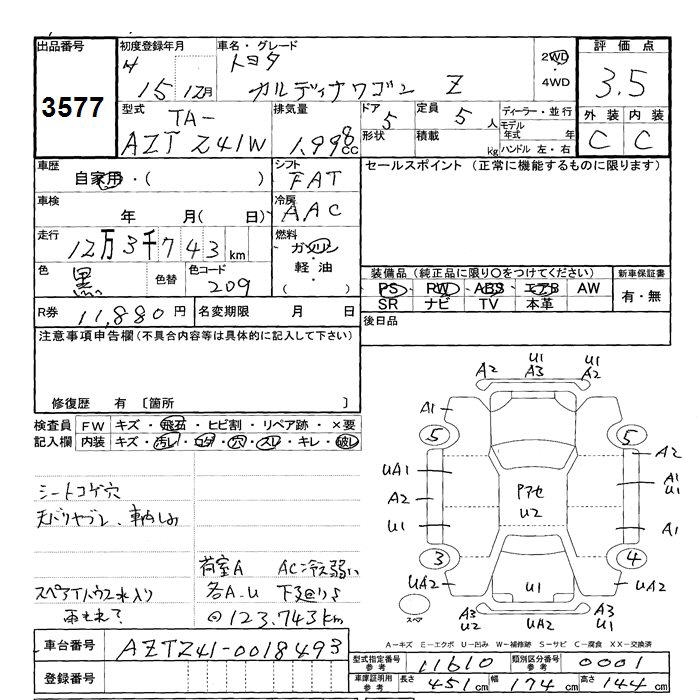 出品番号 初度登録年月 車名・グレード 評価点
3577 H 15 12月 トヨタ 2WD 4WD 3.5
カルディナワゴン Z
型式 排気量 ドア 5 定員 5 人 ディーラー・並行 外装 内装
TA- 形状 積載 kg モデル年式 年 C C
AZT Z41W 1,998cc ハンドル 左・右
車歴 シフト セールスポイント (正常に機能するものに限ります)
自家用・( ) FAT
車検 冷房
年 月( 日) AAC
走行 燃料
12万3千743km ガソリン・軽油・( )
色 黒 色替 色コード 209 装備品 (純正品に限り○をつけてください) 新車保証書
PS PW ABS エアB AW 有・無
SR ナビ TV 本革
R券 11,880円 名変期限 月 日 後日品
注意事項申告欄(不具合内容等は具体的に記入して下さい)
修復歴 有 〔箇所
検査員 FW キズ・飛石・ヒビ割・リペア跡・×要
記入欄 内装 キズ・汚レ・コゲ・穴・スレ・キレ・破レ
シートコゲ穴
天バリヤブレ、車内しみ
荷室A AC冷え弱い
スペアタイハウス水入り 各A-U 下廻りS
雨もれ? ⊙123.743km
A2 U1 A3 U1 A2
A1
5 5
A2
UA1 A1 U1
A2 Pアセ U2
U1 A1
3 4
UA2 U1 UA2
スペア A3 U2 UA2 A3 U1
A-キズ E-エクボ U-凹み W-補修跡 S-サビ C-腐食 XX-交換済
車台番号 AZTZ41-0018493
登録番号
型式指定番号 参考 11610 類別区分番号 参考 0001
車庫証明用 参考 長さ 451cm 幅 174cm 高さ 144cm